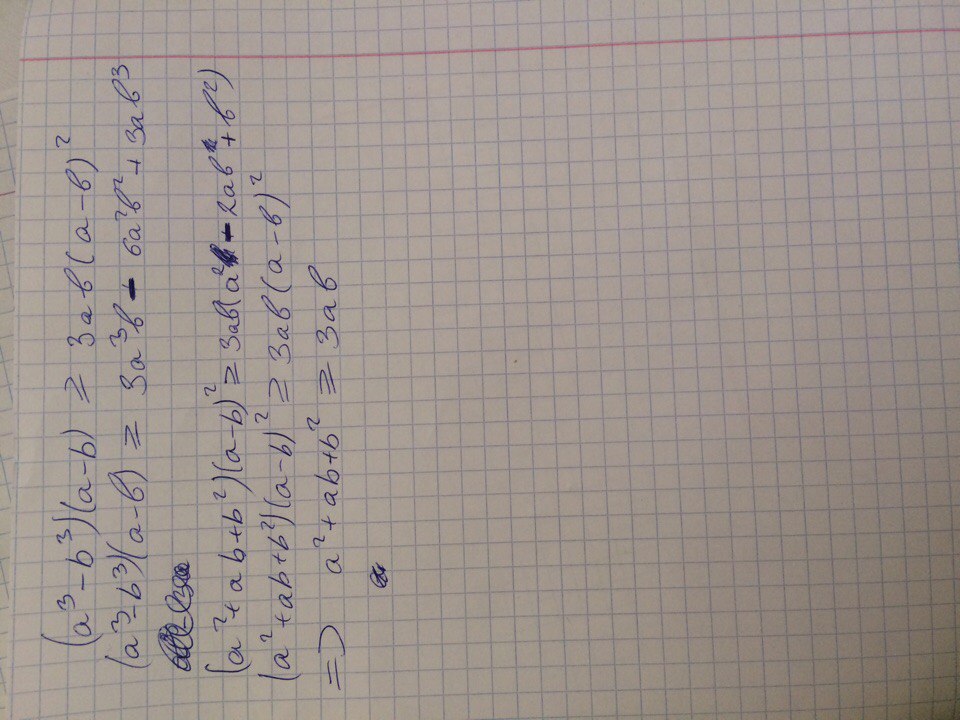 (a³-b³)(a-b) ≥ 3ab(a-b)²
(a³-b³)(a-b) ≥ 3a³b - 6a²b² + 3ab³
(a²+ab+b²)(a-b)² ≥ 3ab(a² - 2ab + b²)
(a²+ab+b²)(a-b)² ≥ 3ab(a-b)²
=> a²+ab+b² ≥ 3ab